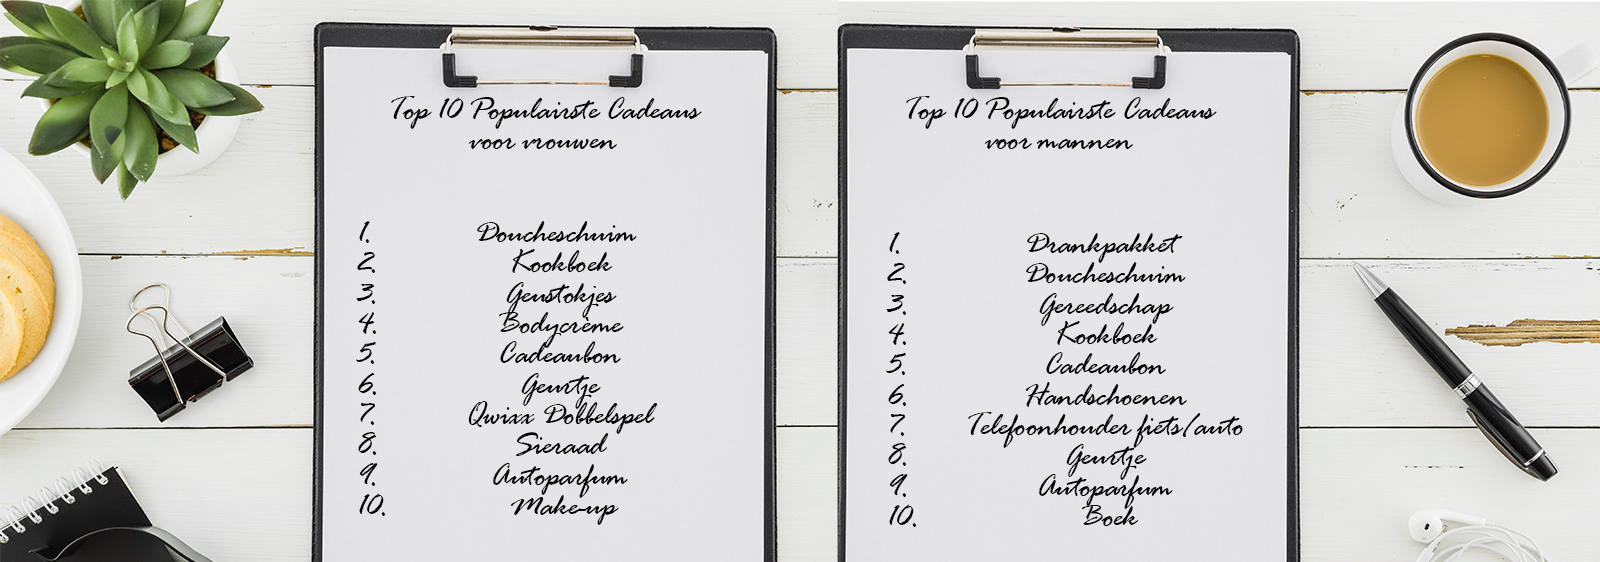 Top 10 Populairste Cadeaus
voor vrouwen
1. Doucheschuim
2. Kookboek
3. Geustokjes
4. Bodycrème
5. Cadeaubon
6. Geurtje
7. Qwixx Dobbelspel
8. Sieraad
9. Autoparfum
10. Make-up
Top 10 Populairste Cadeaus
voor mannen
1. Drankpakket
2. Doucheschuim
3. Gereedschap
4. Kookboek
5. Cadeaubon
6. Handschoenen
7. Telefoonhouder fiets/auto
8. Geurtje
9. Autoparfum
10. Boek